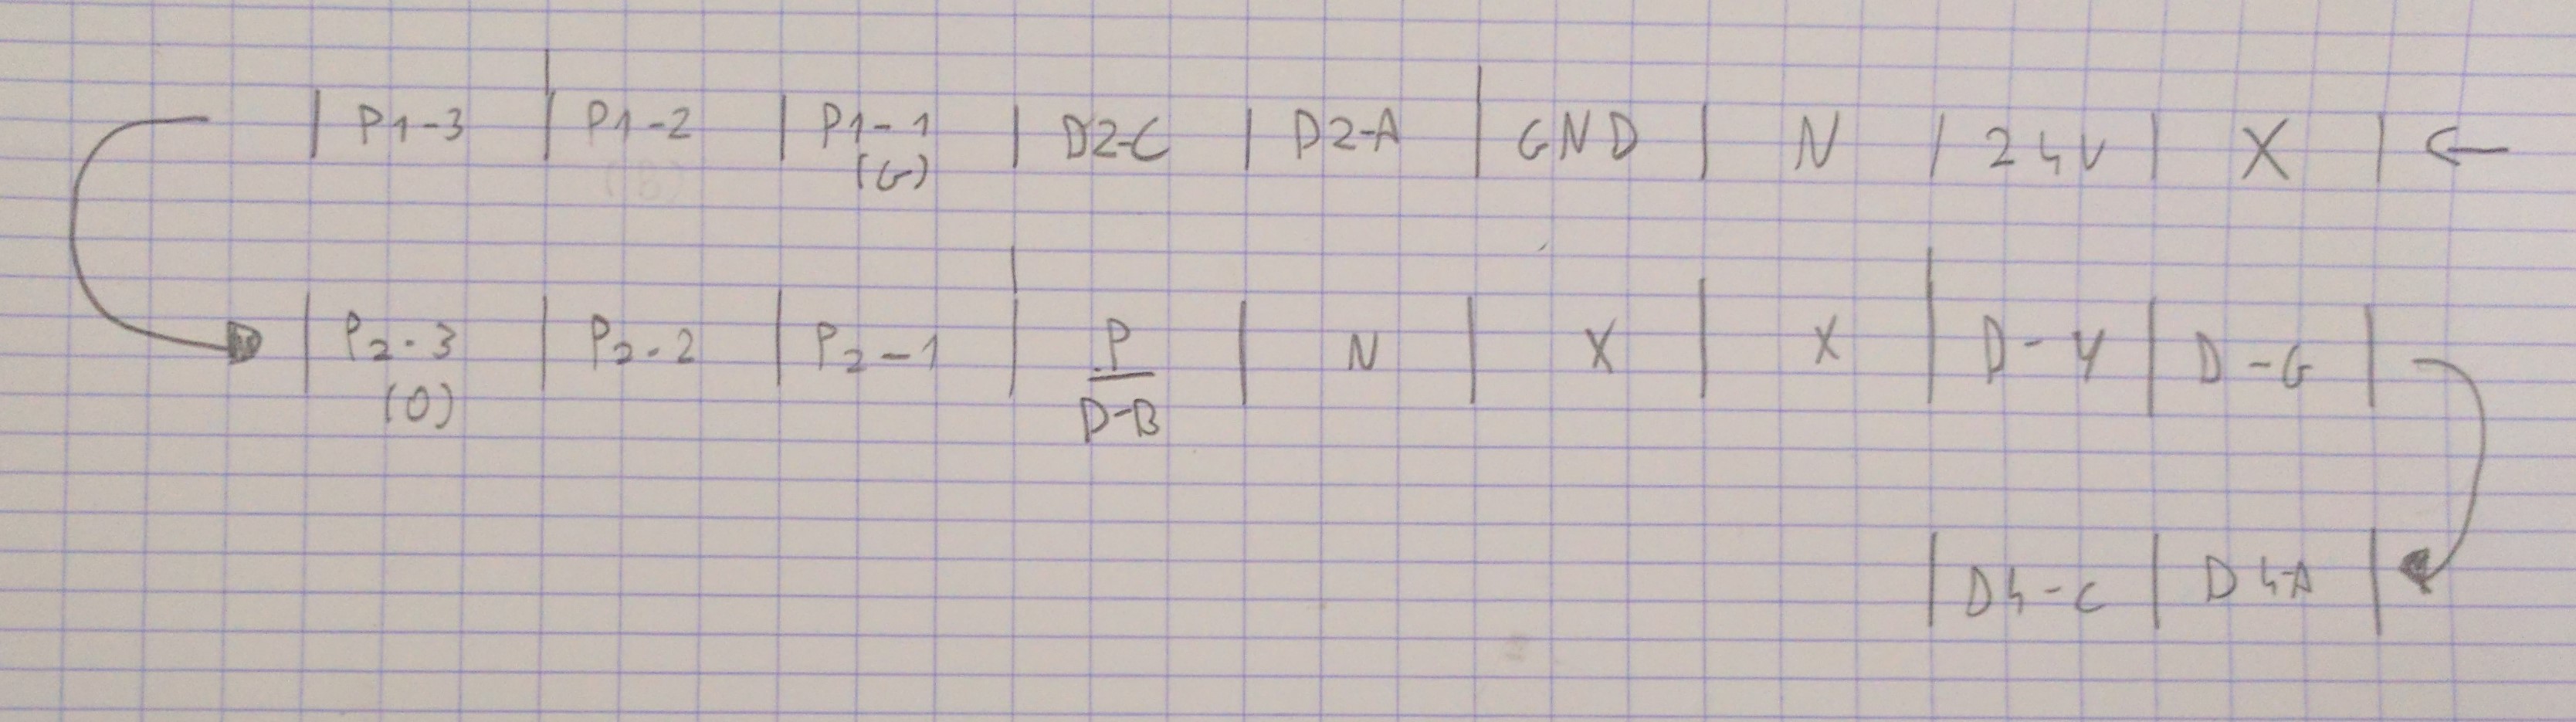 | P1-3 | P1-2 | P1-1 | D2-C | D2-A | GND | N | 24V | X | ←
(G)
| P2-3 | P2-2 | P2-1 | P | N | X | X | D-Y | D-G |
(O) D-B
| D4-C | D4-A |